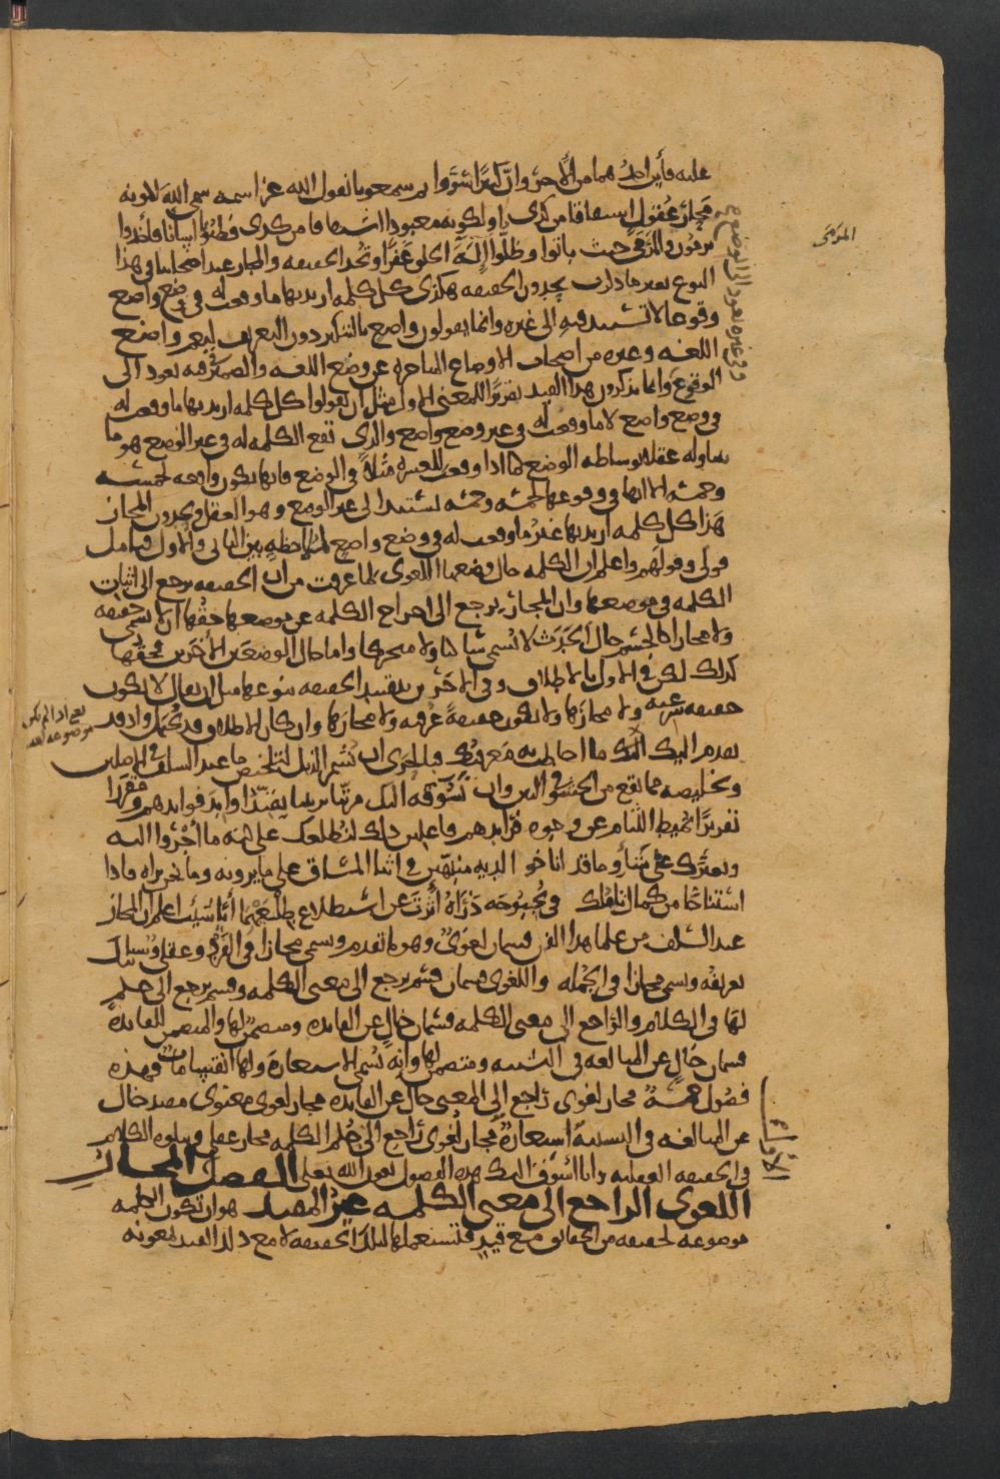 عليه فأين احدهما من الآخر وان كثيرا اشتروا ثم سمعوا نقول الله عز اسمه سمي الله لكونه
محار عقول اشتقاقا من كذى او لكونه معبودا اشتقاقا من كذى فظنوا اتيانا فأخذوا
يرقون والمرقى حيث باتوا وظلوا اللهم غفرا وتحد الحقيقة والمجاز عند اصحابنا في هذا
النوع بغير ما ذكرت يحدون الحقيقة هكذى كل كلمة اريد بها ما وقعت له في وضع واضع
وقوعا لا تستند فيه الى غيره وانما يقولون واضع بالتنكير دون التعريف ليعم واضع
اللغة وغيره من اصحاب الاوضاع المتأخرة عن وضع اللغة والضمير في فيه يعود الى
الوقوع وانما يذكرون هذا القيد تقريرا للمعنى الاول مثل ان يقولوا كل كلمة اريد بها ما وقعت له
في وضع واضع لا ما وقعت له في غير وضع واضع والذي تقع الكلمة له في غير الوضع هو ما
تتناوله عقلا بوساطة الوضع كما اذا وقعت للخمسة مثلا في الوضع فانها تكون واقعة لخمسة
وخمسة الا انها في وقوعها لخمسة وخمسة تستند الى غير الوضع وهو العقل ويحدون المجاز
هكذا كل كلمة اريد بها غير ما وقعت له في وضع واضع لملاحظة بين الثاني والاول فتأمل
قولي وقولهم واعلم ان الكلمة حال وضعها اللغوي لما عرفت من ان الحقيقة ترجع الى اثبات
الكلمة في موضعها وان المجاز يرجع الى اخراج الكلمة عن موضعها حقها ان لا تسمى حقيقة
ولا مجازا كالجسم حال الحدوث لا يسمى ساكنا ولا متحركا واما حال الوضعين الآخرين فحقها
كذلك لكن في الاول بالاطلاق وفي الآخرين بتقييد الحقيقة بنوعها مثل ان يقال لا تكون
حقيقة شرعية ولا مجازها ولا تكون حقيقة عرفية ولا مجازها وان كان الاطلاق قد يحتمل واذ قد
تقدم اليك ما احاطت به معرفتك فبالحرى ان نشمر الذيل لتلخيص ما عند السلف في الاصلين
وتخليصه مما يقع من الحشو في البين وان نسوقه اليك مرتبا ترتيبا يقيد اوابد فوائدهم ومقررا
تقريرا يميط اللثام عن وجوه فرائدهم فاعلين ذلك لنطلعك على كنه ما اجروا اليه
ونعثرك على متناء وما قد اناخوا لديه منبهين في اثناء المساق على ما يرونه وما نحن نراه فاذا
استتاحا من كمال تأملك في بحبوحة ذراه اثرت عن استطلاع طلعهما ايا شئت اعلم ان المجاز
عند السلف من علماء هذا الفن قسمان لغوي وهو ما تقدم ويسمى مجازا في المفرد وعقلي وسيأتيك
تعريفه ويسمى مجازا في الجملة واللغوي قسمان قسم يرجع الى معنى الكلمة وقسم يرجع الى حكم
لها في الكلام والراجع الى معنى الكلمة قسمان خال عن الفائدة ومتضمن لها والمتضمن للفائدة
قسمان خال عن المبالغة في التشبيه ومتضمن لها وانه يسمى الاستعارة ولها انقسامات فهذه
فصول خمسة مجاز لغوي راجع الى المعنى خال عن الفائدة مجاز لغوي معنوي مفيد خال
عن المبالغة في التشبيه استعارة مجاز لغوي راجع الى حكم الكلمة مجاز عقلي ويتلوه الكلام
في الحقيقة العقلية وانا اسوق اليك هذه الفصول بعون الله تعالى الفصل المجاز
اللغوي الراجع الى معنى الكلمة غير المفيد هو ان تكون الكلمة
موضوعة لحقيقة من الحقائق مع قيد فتستعملها لتلك الحقيقة لا مع ذلك القيد بمعونة
المرقى
وفي غيره يعود الى الوضع
يعني اذا لم تكن
موضوعة لغة